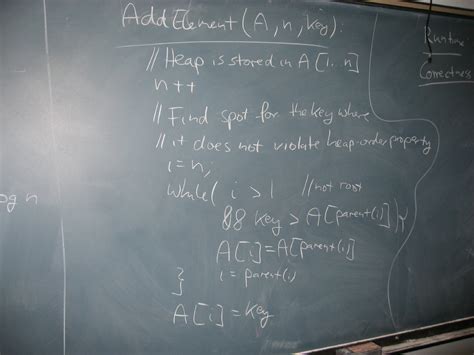 AddElement(A, n, key):
// Heap is stored in A[1..n]
n++
// Find spot for the key where
// it does not violate heap-order property
i = n;
while( i > 1 // not root
&& key > A[parent(i)]){
A[i] = A[parent(i)]
i = parent(i)
}
A[i] = key
Runtime
Correctness
og n